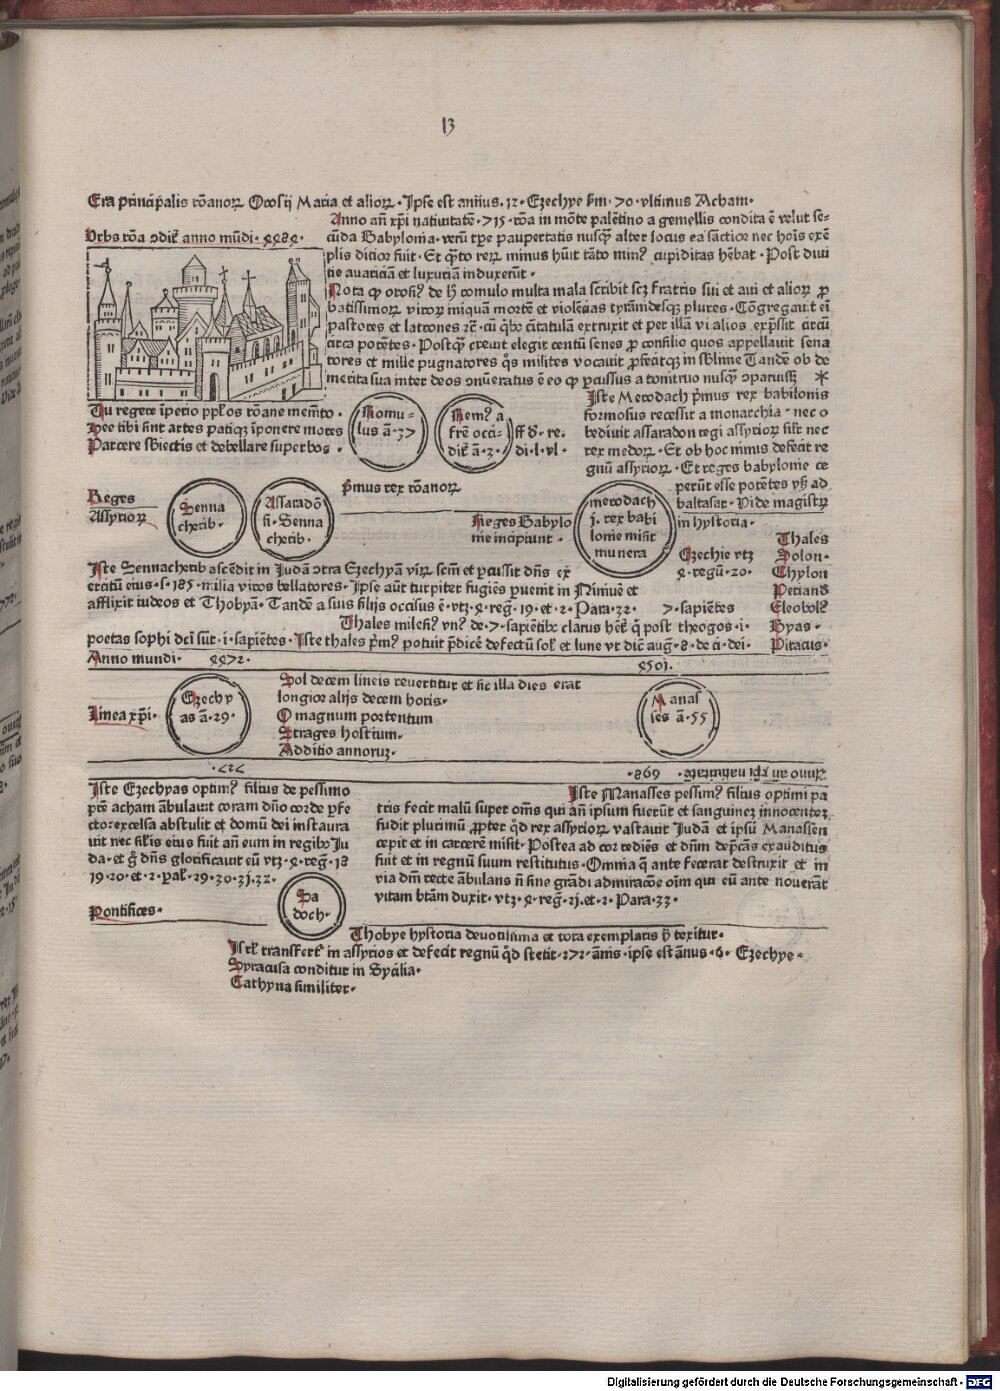 13
Era principalis rõanoꝝ Orosij Maria et alioꝝ · Ipse est annus · 12 · Ezechye ßm · 70 · vltimus Acham ·
Anno añ xp̃i natiuitatẽ · 715 · rõa in mõte palẽtino a gemellis condita ẽ velut se⸗
Vrbs rõa ↄdit᷑ anno mũdi · 4484 ·
cũda Babylonia · verũ tꝑe paupertatis nusq̃ alter locus ea sãctior nec hoĩs exẽ
plis ditior fuit · Et q̃to reꝝ minus hũit tãto minꝰ cupiditas hẽbat · Post diui
tie auariciã et luxuriam induxerũt ·
Nota ꝙ orosiꝰ de h̃ romulo multa mala scribit scꝫ fratris sui et aui et alioꝝ ꝓ
batissimoꝝ viroꝝ iniquam mortẽ et violẽcias tyrãnidesqꝫ plures · Cõgregauit eĩ
pastores et latrones ⁊c̃ · cũ q̃bꝰ ciuitatulã extruxit et per illã vi alios exp̃ssit circũ
circa potẽtes · Postq̃ creuit elegit centũ senes ꝓ consilio quos appellauit sena
tores et mille pugnatores q̃s milites vocauit ꝓfecitqꝫ in sublime Tandẽ ob de
merita sua inter deos ↄnũeratus ẽ eo ꝙ ꝑcussus a tonitruo nusq̃ ↄparuisset *
Tu regere ĩperio ppl̃os rõane memẽto ·
Hee tibi sunt artes paciqꝫ ĩponere mores
Parcere sbiectis et debellare superbos ·
Romu⸗
lus ã · 37
Remꝰ a
frẽ occi⸗
dit᷑ ã · 3 ·
ff ð · re ·
di · l · vl ·
Iste Merodach p̃mus rex babilonis
formosus recessit a monarchia · nec o
bediuit assaradon regi assyrioꝝ silr̃ nec
rex medoꝝ · Et ob hoc nimis defecit re
gnũ assyrioꝝ · Et reges babylonie ce
perũt esse potẽtes vsqꝫ ad
baltasar · Vide magistꝝ
in hystoria ·
p̃mus rex rõanoꝝ
Reges
Assyrioꝝ
Senna
cherib ·
Assaradõ
fi · Senna
cherib ·
Reges Babylo
nie incipiunt ·
merodach
j · rex babi
lonie misit
munera
Ezechie vtꝫ
4 · regũ · 20 ·
Thales
Solon ·
Chylon
Periand
Cleobolꝰ
Byas ·
Pitacus ·
Iste Sennacherib ascẽdit in Judã ↄtra Ezechyã virũ scm̃ et ꝑcussit dñs ex̃
ercitũ eius · s · 185 · milia viros bellatores · Ipse aũt turpiter fugiẽs ꝑuenit in Niniuẽ et
afflixit iudeos et Thobyã · Tandẽ a suis filijs occisus ẽ · vtꝫ · 4 · reg̃ · 19 · et · 2 · Para · 32 · 7 · sapiẽtes
Thales milesiꝰ vnꝰ de · 7 · sapiẽtibꝰ clarus hẽt᷑ q̃ post theogos · i ·
poetas sophi dc̃i sũt · i · sapiẽtes · Iste thales p̃mꝰ potuit p̃dicẽ defectũ sol̃ et lune vt dic̃ aug̃ · 8 · de ci · dei ·
Anno mundi · 4472 ·
4501 ·
Linea xp̃i ·
Ezechy
as ã · 29 ·
Sol decem lineis reuertitur et sic illa dies erat
longior alijs decem horis ·
O magnum portentum
Strages hostium ·
Additio annoruꝫ ·
Manas
ses ã · 55
· 727 ·
· 698 · Anno añ xp̃i natiuitatẽ ·
Iste Ezechyas optimꝰ filius de pessimo
pr̃e acham ãbulauit coram dño corde ꝑfe
cto: excelsa abstulit et domũ dei instaura
uit nec silis eius fuit añ eum in regibꝰ Ju
da · et q̃ dñs glorificauit eũ vtꝫ · 4 · reg̃ · 18
19 · 20 · et · 2 · pal̃ · 29 · 30 · 31 · 32 ·
Iste Manasses pessimꝰ filius optimi pa
tris fecit malũ super oms̃ qui añ ipsum fuerũt et sanguinez innocentez
fudit plurimũ ꝓpter qd̃ rex assyrioꝝ vastauit Judã et ipsũ Manassen
cepit et in carcerẽ misit · Postea ad cor rediẽs et dñm dep̃cãs exauditus
fuit et in regnũ suum restitutus · Omnia q̃ ante fecerat destruxit et in
via dm̃ recte ãbulans ñ sine grãdi admiracõe oĩm qui eũ ante nouerãt
vitam btãm duxit · vtꝫ · 4 · reg̃ · 21 · et · 2 · Para · 33 ·
Pontifices ·
Sa
doch ·
Thobye hystoria deuotissima et tota exemplaris h̃ texitur ·
Isrl̃ transfert᷑ in assyrios et defecit regnũ qd̃ stetit · 272 · ãnis · ipse est ãnus · 6 · Ezechye ·
Syracusa conditur in Sycilia ·
Cathyna similiter ·
Digitalisierung gefördert durch die Deutsche Forschungsgemeinschaft - DFG